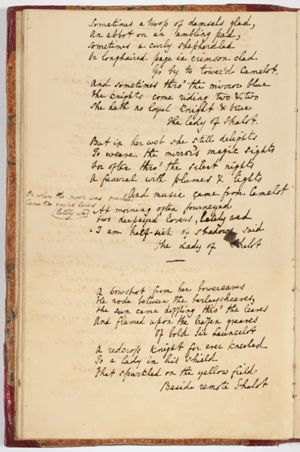 Sometimes a troop of damsels glad,
An abbot on an ambling pad,
Sometimes a curly shepherdlad
Or longhaired page in crimson clad
Go by to tower'd Camelot.
And sometimes thro' the mirror blue
The Knights come riding two & two,
She hath no loyal Knight & true
The Lady of Shalot.
But in her web she still delights
To weave the mirror's magic sights
For often thro' the silent nights
A funeral with plumes & lights
And music came from Camelot
Or when the moon was overhead
Came two young lovers
lately wed
At morning often journeyed
Two lovers, lately wed
"I am half-sick of shadows" said
The Lady of Shalot
A bowshot from her bowereaves
He rode between the barleysheaves
The sun came dazzling thro' the leaves
And flamed upon the brazen greaves
Of bold Sir Launcelot
A redcross Knight for ever kneeled
To a lady in his shield
That sparkled on the yellow field
Beside remote Shalot